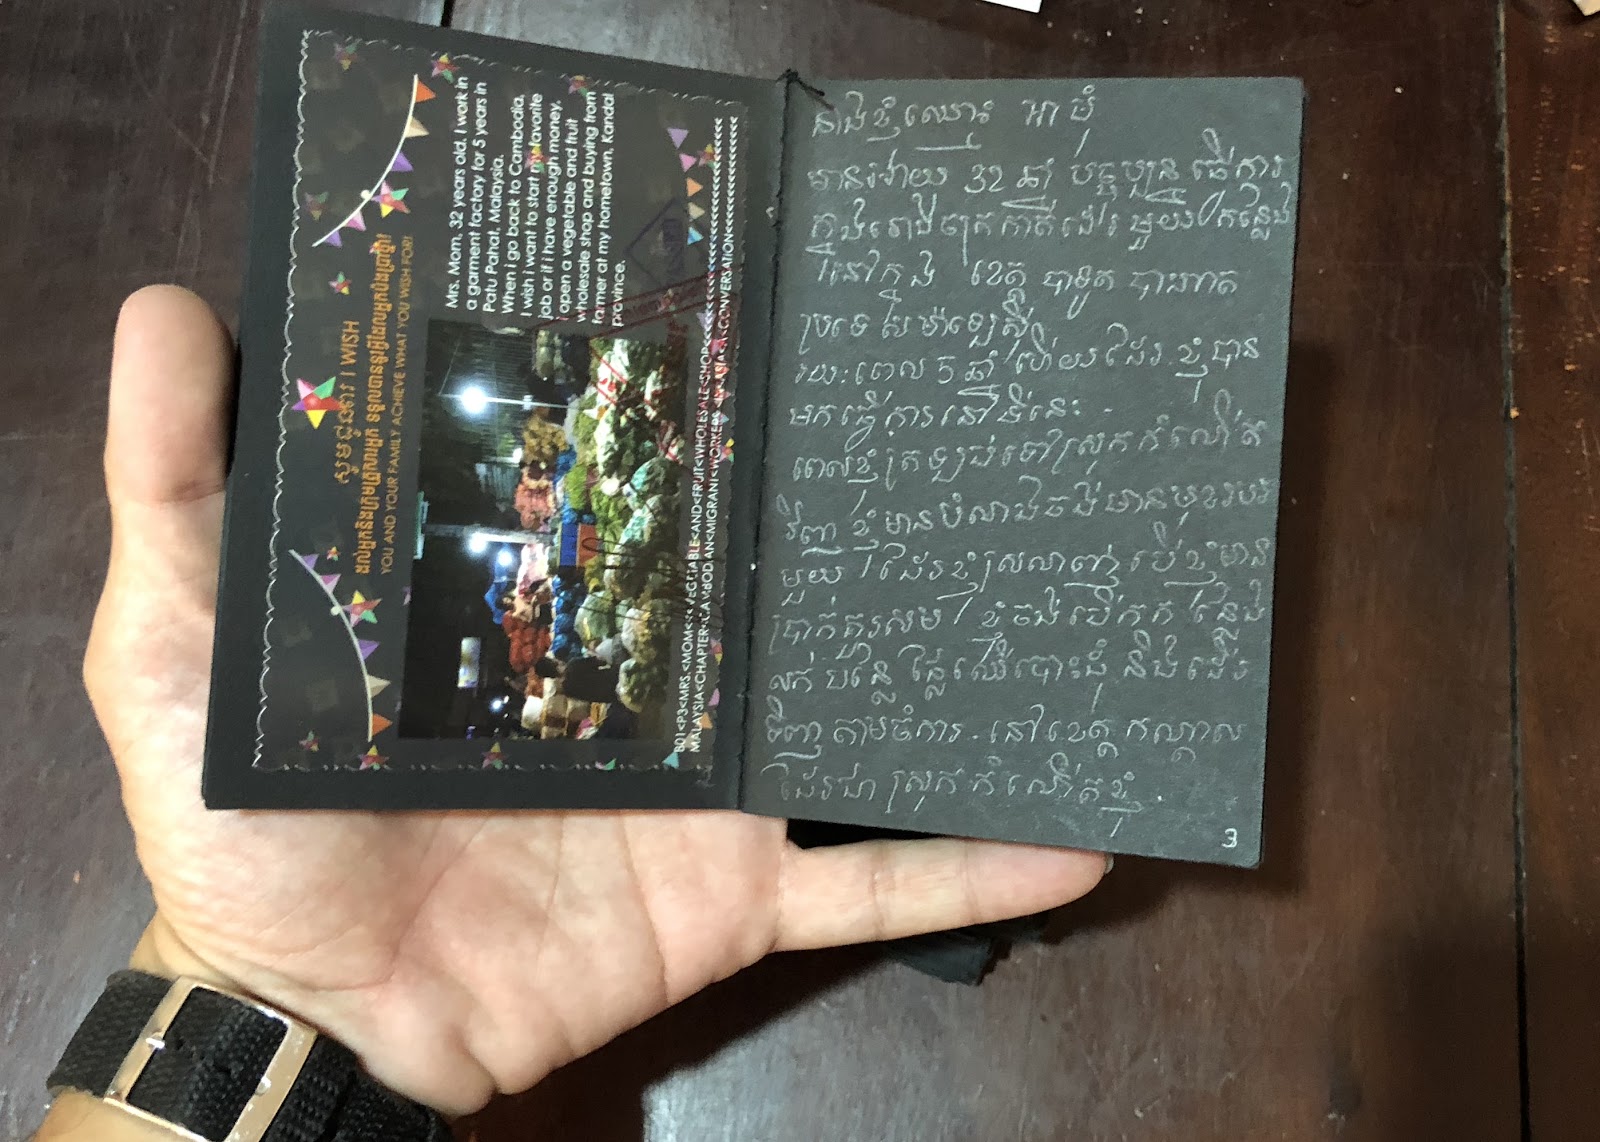 សូមជូនពរ | I WISH
YOU AND YOUR FAMILY ACHIEVE WHAT YOU WISH FOR!
Mrs. Mom, 32 years old, I work in
a garment factory for 5 years in
Patu Pahat, Malaysia.
When i go back to Cambodia,
I wish i want to start my favorite
job or if i have enough money,
I open a vegetable and fruit
wholesale shop and buying from
farmer at my hometown, Kandal
province.
B01<P3<MRS.<MOM<<<VEGETABLE<AND<FRUIT<WHOLESALE<SHOP<<<<<<<<<<<<<<<<<<<
MALAYSIA<CHAPTER<CAMBODIAN<MIGRANT<WORKERS<MALAYSIA<A<CONVERSATION<<<<<<<<
នាងខ្ញុំឈ្មោះ មុំ
មានអាយុ 32 ឆ្នាំ បច្ចុប្បន្ន ធ្វើការ
ក្នុងរោងចក្រកាត់ដេរ មួយកន្លែង
នៅក្នុង ខេត្ត បាទូត បាហាត
ប្រទេស ម៉ាឡេស៊ី
រយៈពេល 5 ឆ្នាំ ហើយដែរ ខ្ញុំបាន
មកធ្វើការនៅទីនេះ.
ពេលខ្ញុំត្រឡប់ទៅស្រុកកំណើត
វិញ ខ្ញុំមានបំណងចង់មានមុខរបរ
មួយ ដែរខ្ញុំស្រលាញ់ បើខ្ញុំមាន
ប្រាក់គួរសម ខ្ញុំចង់បើកកន្លែង
លក់ បន្លែ ផ្លែឈើបោះដុំ និង
វិញ តាមចំការ. នៅខេត្ត កណ្តាល
ដែរជា ស្រុកកំណើតខ្ញុំ.
3